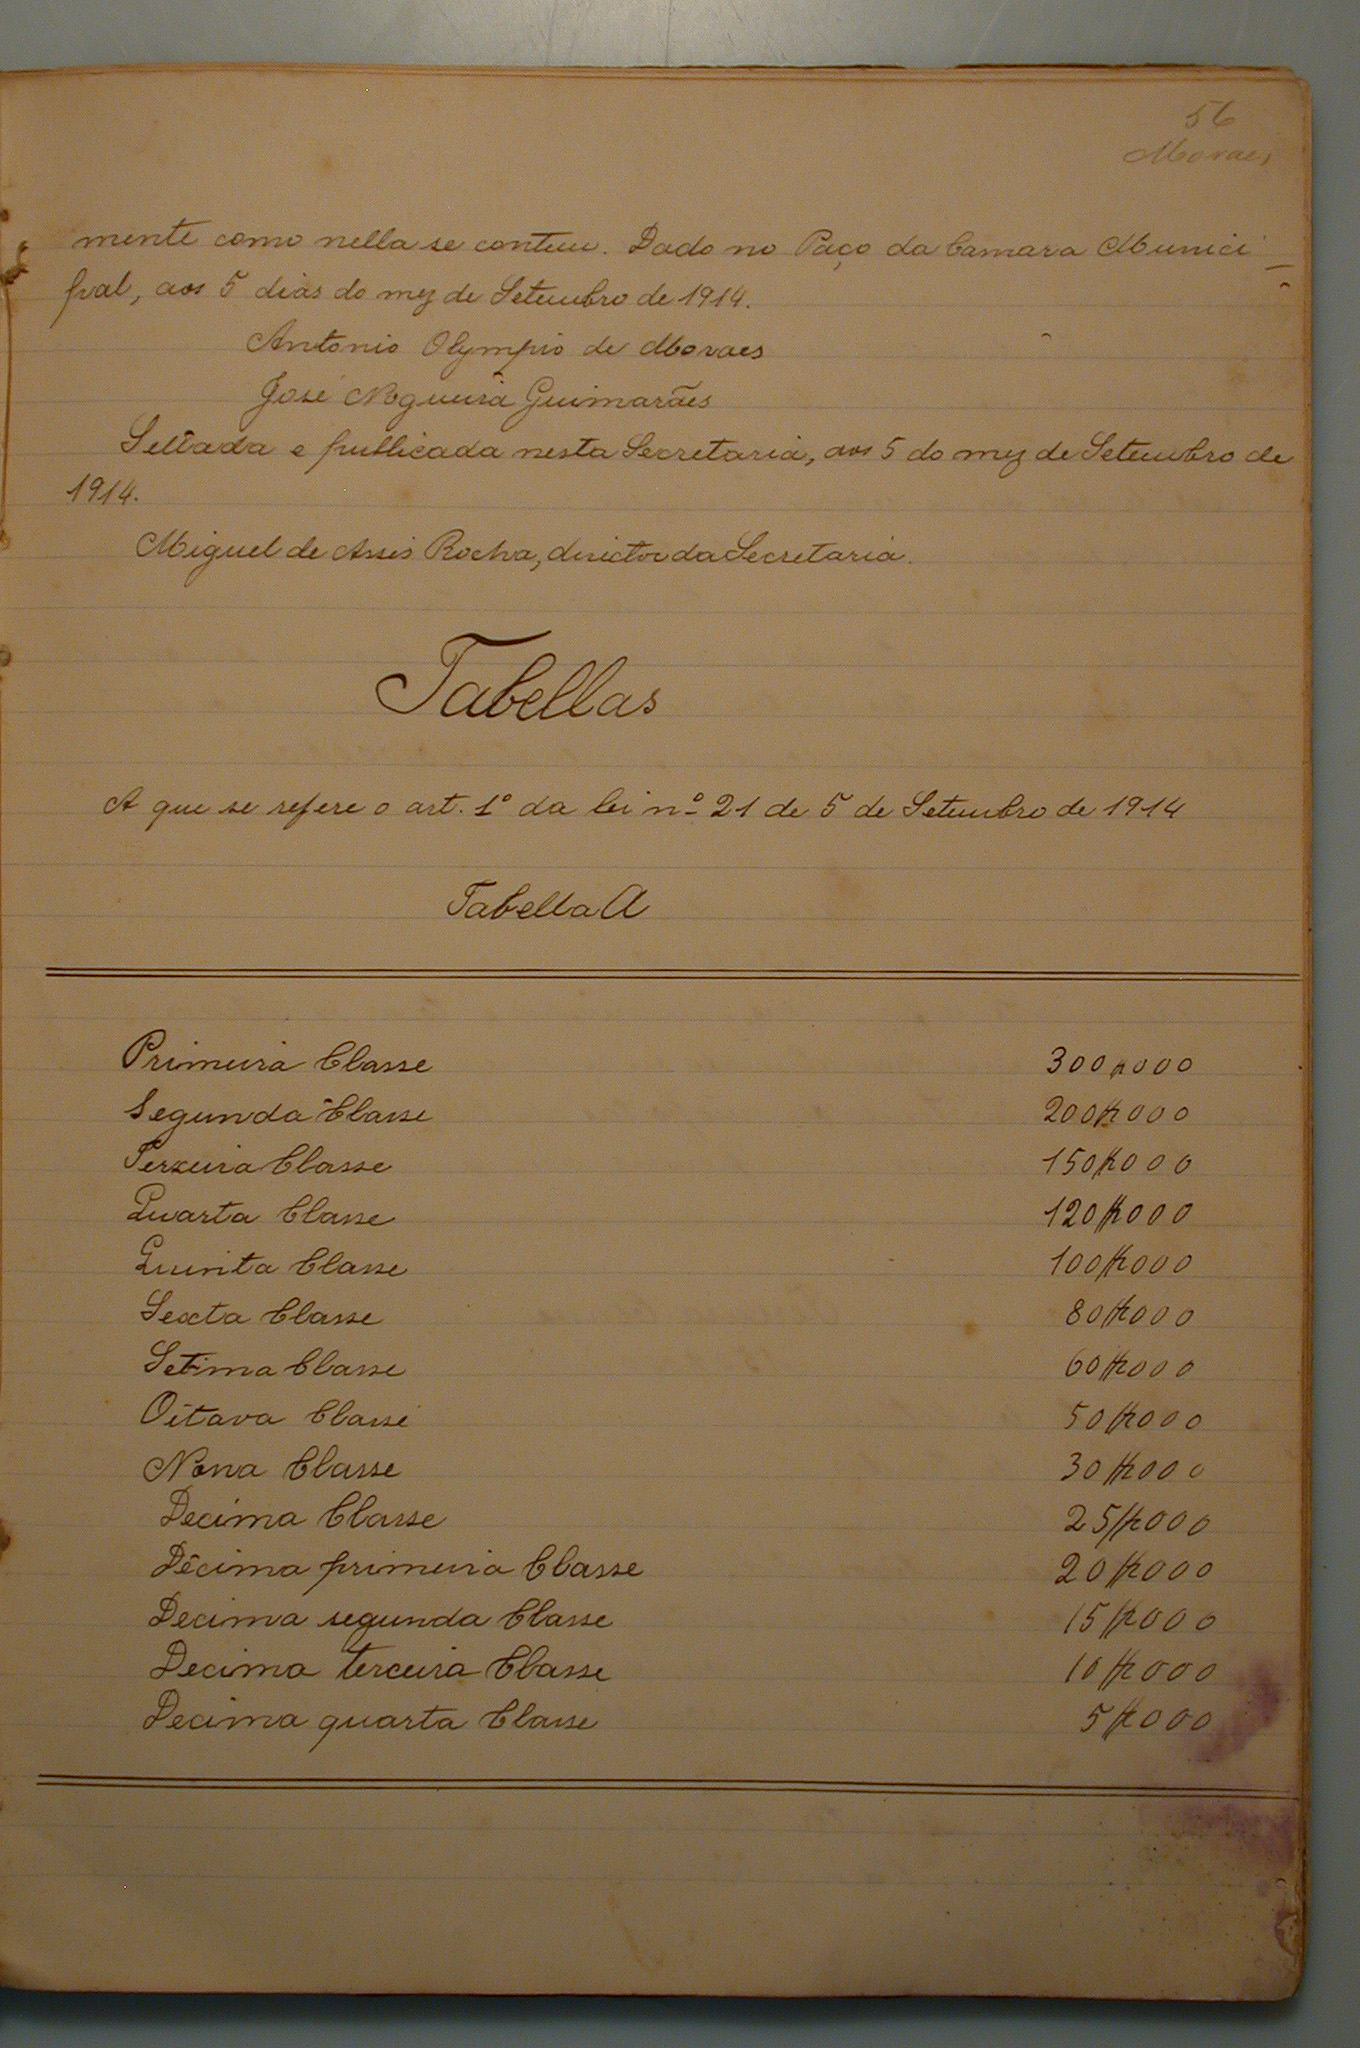 56
Moraes
mente como nella se contem. Dado no Paço da Camara Munici-
pal, aos 5 dias do mez de Setembro de 1914.
Antonio Olympio de Moraes
José Nogueira Guimarães
Sellada e publicada nesta Secretaria, aos 5 do mez de Setembro de
1914.
Miguel de Assis Rocha, director da Secretaria.
Tabellas
A que se refere o art. 1º da lei nº 21 de 5 de Setembro de 1914
Tabella A
Primeira Classe 300$000
Segunda Classe 200$000
Terceira Classe 150$000
Quarta Classe 120$000
Quinta Classe 100$000
Sexta Classe 80$000
Setima Classe 60$000
Oitava Classe 50$000
Nona Classe 30$000
Decima Classe 25$000
Décima primeira Classe 20$000
Decima segunda Classe 15$000
Decima terceira Classe 10$000
Decima quarta Classe 5$000